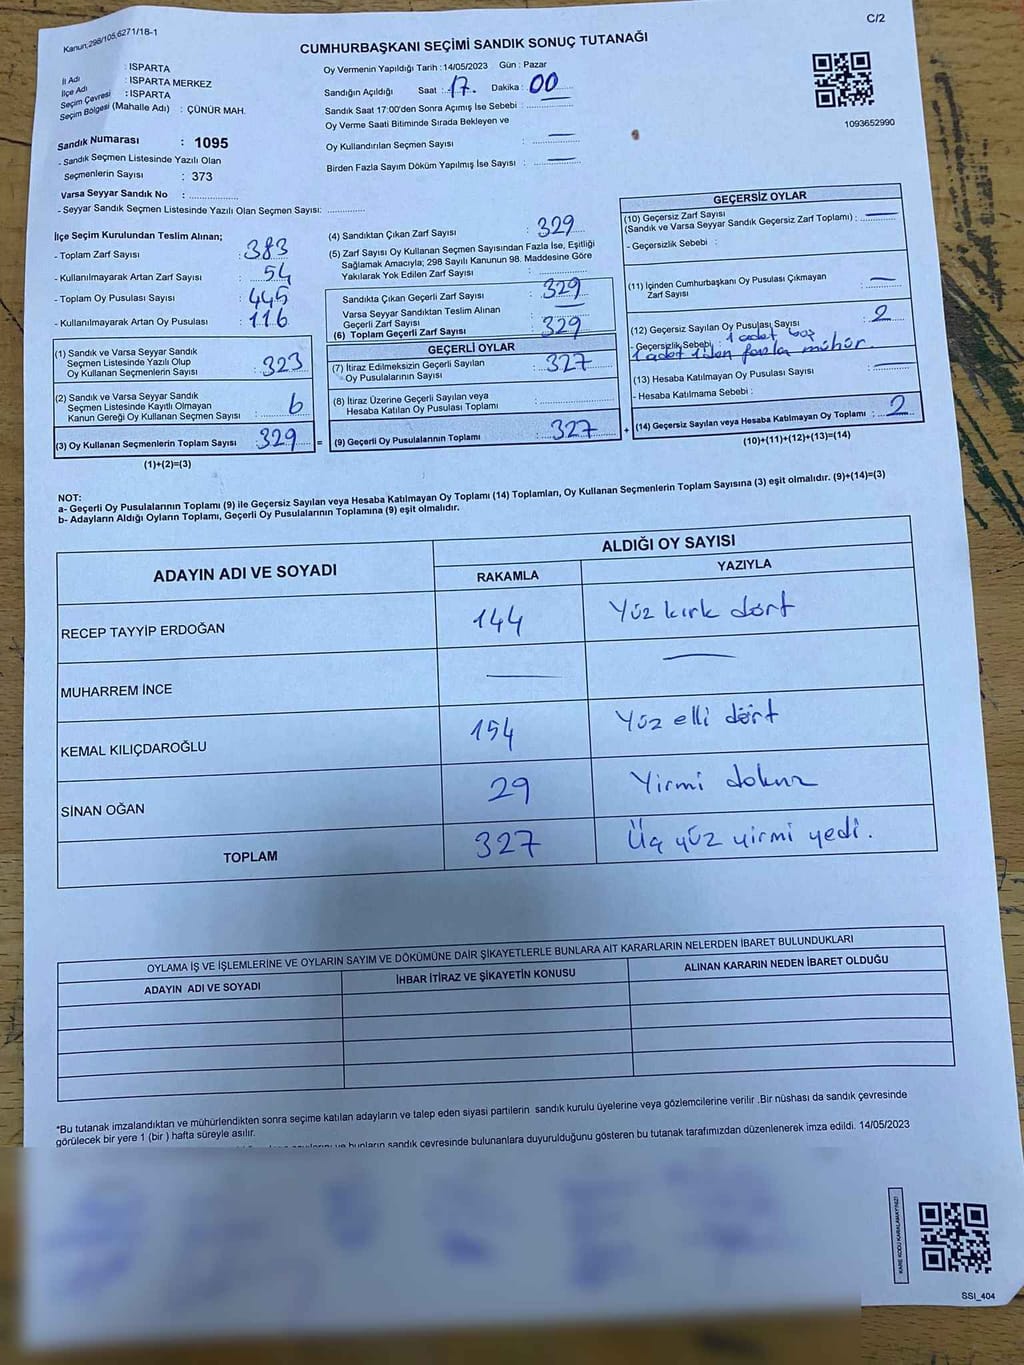 Kanun:298/105,6271/18-1
C/2
CUMHURBAŞKANI SEÇİMİ SANDIK SONUÇ TUTANAĞI
İl Adı : ISPARTA
İlçe Adı : ISPARTA MERKEZ
Seçim Çevresi : ISPARTA
Seçim Bölgesi (Mahalle Adı) : ÇÜNÜR MAH.
Oy Vermenin Yapıldığı Tarih : 14/05/2023 Gün : Pazar
Sandığın Açıldığı Saat : 17. Dakika : 00
Sandık Saat 17:00'den Sonra Açımış İse Sebebi :
Oy Verme Saati Bitiminde Sırada Bekleyen ve
Oy Kullandırılan Seçmen Sayısı : —
Birden Fazla Sayım Döküm Yapılmış İse Sayısı : —
1093652990
Sandık Numarası : 1095
- Sandık Seçmen Listesinde Yazılı Olan
Seçmenlerin Sayısı : 373
Varsa Seyyar Sandık No :
- Seyyar Sandık Seçmen Listesinde Yazılı Olan Seçmen Sayısı:
İlçe Seçim Kurulundan Teslim Alınan;
- Toplam Zarf Sayısı : 383
- Kullanılmayarak Artan Zarf Sayısı : 54
- Toplam Oy Pusulası Sayısı : 445
- Kullanılmayarak Artan Oy Pusulası : 116
(1) Sandık ve Varsa Seyyar Sandık
Seçmen Listesinde Yazılı Olup
Oy Kullanan Seçmenlerin Sayısı : 323
(2) Sandık ve Varsa Seyyar Sandık
Seçmen Listesinde Kayıtlı Olmayan
Kanun Gereği Oy Kullanan Seçmen Sayısı : 6
(3) Oy Kullanan Seçmenlerin Toplam Sayısı : 329 =
(1)+(2)=(3)
(4) Sandıktan Çıkan Zarf Sayısı : 329
(5) Zarf Sayısı Oy Kullanan Seçmen Sayısından Fazla İse, Eşitliği
Sağlamak Amacıyla; 298 Sayılı Kanunun 98. Maddesine Göre
Yakılarak Yok Edilen Zarf Sayısı :
Sandıkta Çıkan Geçerli Zarf Sayısı : 329
Varsa Seyyar Sandıktan Teslim Alınan
Geçerli Zarf Sayısı : —
(6) Toplam Geçerli Zarf Sayısı : 329
GEÇERLİ OYLAR
(7) İtiraz Edilmeksizin Geçerli Sayılan
Oy Pusulalarının Sayısı : 327
(8) İtiraz Üzerine Geçerli Sayılan veya
Hesaba Katılan Oy Pusulası Toplamı :
(9) Geçerli Oy Pusulalarının Toplamı : 327 +
GEÇERSİZ OYLAR
(10) Geçersiz Zarf Sayısı
(Sandık ve Varsa Seyyar Sandık Geçersiz Zarf Toplamı) : —
- Geçersizlik Sebebi :
(11) İçinden Cumhurbaşkanı Oy Pusulası Çıkmayan
Zarf Sayısı : —
(12) Geçersiz Sayılan Oy Pusulası Sayısı : 2
- Geçersizlik Sebebi : 1 adet boş
1 adet 1'den fazla mühür.
(13) Hesaba Katılmayan Oy Pusulası Sayısı : —
- Hesaba Katılmama Sebebi :
(14) Geçersiz Sayılan veya Hesaba Katılmayan Oy Toplamı : 2
(10)+(11)+(12)+(13)=(14)
NOT:
a- Geçerli Oy Pusulalarının Toplamı (9) ile Geçersiz Sayılan veya Hesaba Katılmayan Oy Toplamı (14) Toplamları, Oy Kullanan Seçmenlerin Toplam Sayısına (3) eşit olmalıdır. (9)+(14)=(3)
b- Adayların Aldığı Oyların Toplamı, Geçerli Oy Pusulalarının Toplamına (9) eşit olmalıdır.
ADAYIN ADI VE SOYADI
ALDIĞI OY SAYISI
RAKAMLA YAZIYLA
RECEP TAYYİP ERDOĞAN 144 Yüz kırk dört
MUHARREM İNCE — —
KEMAL KILIÇDAROĞLU 154 Yüz elli dört
SİNAN OĞAN 29 Yirmi dokuz
TOPLAM 327 Üç yüz yirmi yedi.
OYLAMA İŞ VE İŞLEMLERİNE VE OYLARIN SAYIM VE DÖKÜMÜNE DAİR ŞİKAYETLERLE BUNLARA AİT KARARLARIN NELERDEN İBARET BULUNDUKLARI
ADAYIN ADI VE SOYADI İHBAR İTİRAZ VE ŞİKAYETİN KONUSU ALINAN KARARIN NEDEN İBARET OLDUĞU
*Bu tutanak imzalandıktan ve mühürlendikten sonra seçime katılan adayların ve talep eden siyasi partilerin sandık kurulu üyelerine veya gözlemcilerine verilir .Bir nüshası da sandık çevresinde
görülecek bir yere 1 (bir ) hafta süreyle asılır.
ve bunların sandık çevresinde bulunanlara duyurulduğunu gösteren bu tutanak tarafımızdan düzenlenerek imza edildi. 14/05/2023
KARE KODU KARALAMAYINIZ!
SSI_404